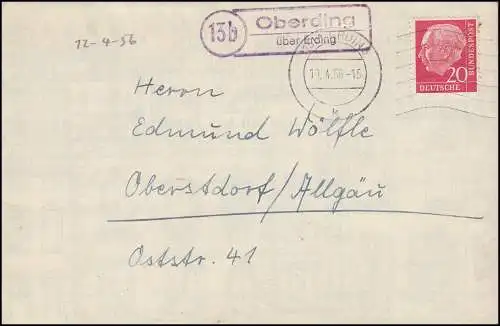 12-4-56
13b Oberding
über Erding
20
DEUTSCHE
BUNDESPOST
Herrn
Edmund Wölfle
Oberstdorf/Allgäu
Oststr. 41